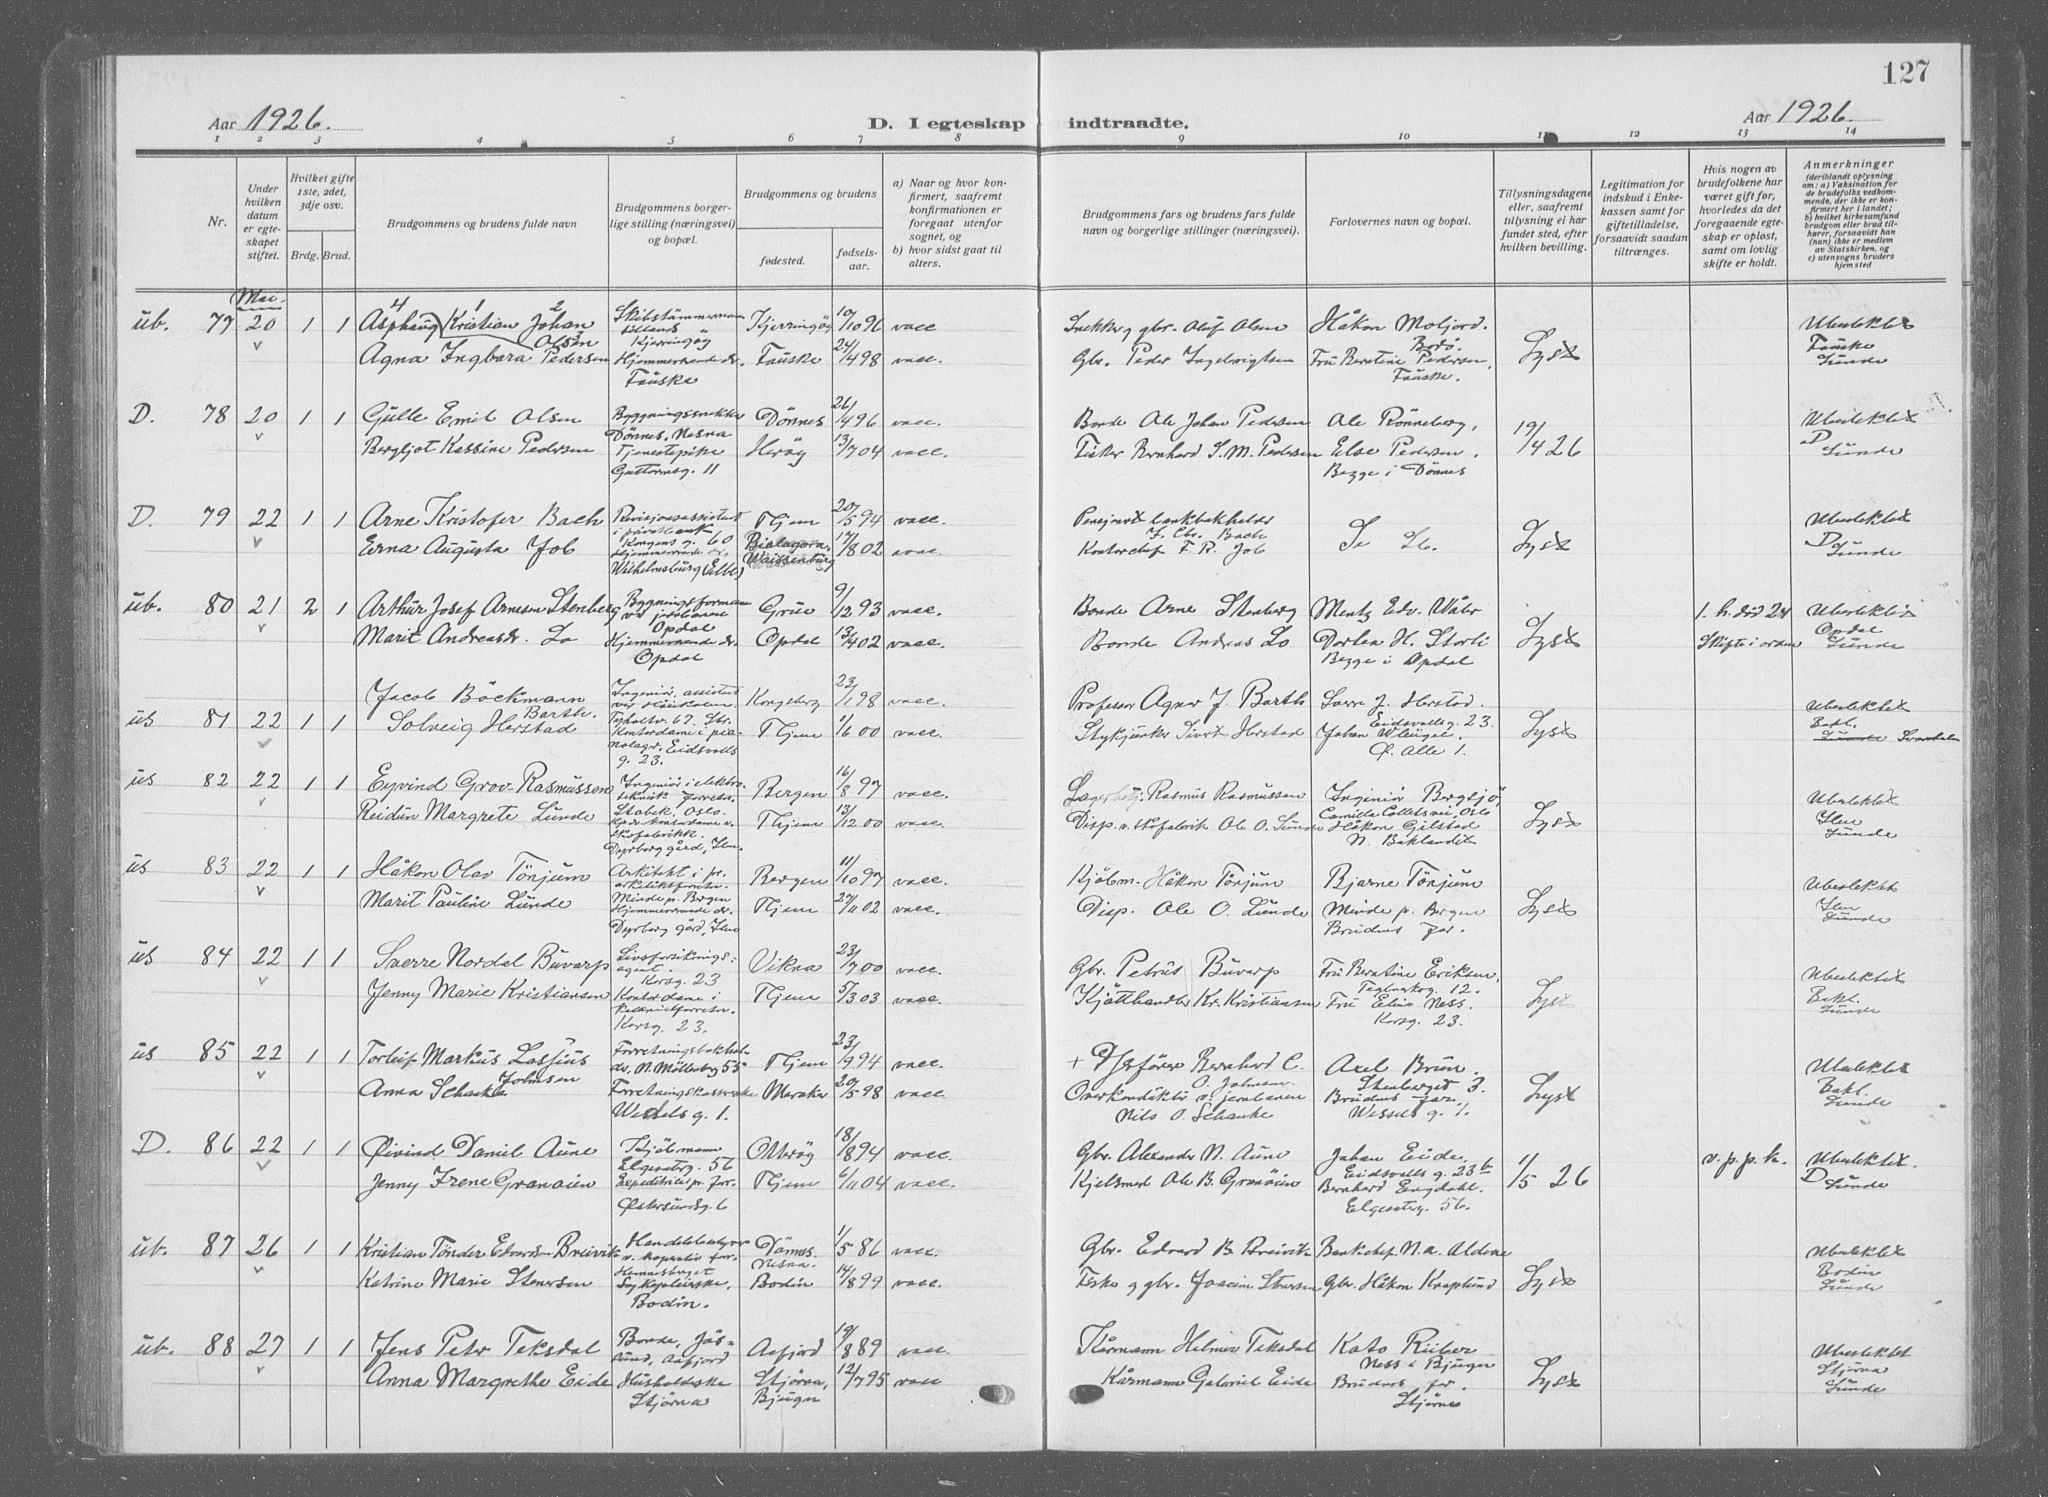 127
Aar 1926.
D. I egteskap indtraadte.
Aar 1926.
1 2 3 4 5 6 7 8 9 10 11 12 13 14
Nr.
Under hvilken datum er egteskapet stiftet.
Hvilket gifte 1ste, 2det, 3dje osv.
Brdg. Brud.
Brudgommens og brudens fulde navn
Brudgommens borgerlige stilling (næringsvei) og bopæl.
Brudgommens og brudens
fødested.
fødselsaar.
a) Naar og hvor konfirmert, saafremt konfirmationen er foregaat utenfor sognet, og
b) hvor sidst gaat til alters.
Brudgommens fars og brudens fars fulde navn og borgerlige stillinger (næringsvei).
Forlovernes navn og bopæl.
Tillysningsdagene eller, saafremt tillysning ei har fundet sted, efter hvilken bevilling.
Legitimation for indskud i Enkekassen samt for giftetilladelse, forsaavidt saadan tiltrænges.
Hvis nogen av brudefolkene har været gift før, hvorledes da det foregaaende egteskap er opløst, samt om lovlig skifte er holdt.
Anmerkninger (deriblandt oplysning om: a) Vaksination for de brudefolks vedkommende, der ikke er konfirmert her i landet; b) hvilket kirkesamfund brudgom eller brud tilhører, forsaavidt han (hun) ikke er medlem av Statskirken, og c) utensogns bruders hjemsted
Mai.
ub. 77 20 1 1 Asphaug Kristian Johan Olsen Kjerringøy 10/10 96 vacc. Snekker g gbr. Oluf Olsen Håkon Moljord. Bodø. Lyst Ubeslektet
Agna Ingbara Pedersen Hjemmeværende dr. Fauske Fauske 24/4 98 vacc. Gbr. Peder Ingebrigtsen Fru Berntine Pedersen, Fauske. Fauske Lunde
D. 78 20 1 1 Gulle Emil Olsen Bygningssnekker Dønnes, Nesna Dønnes 26/4 96 vacc. Bonde Ole Johan Pedersen Ole Rønneberg, 19/4 26 Ubeslektet
Bergljot Kassine Pedersen Tjenestepike Guttormsg. 11 Herøy 13/7 04 vacc. Fisker Bernhard S. M. Pedersen Else Pedersen. Begge i Dønnes D Lunde
D. 79 22 1 1 Arne Kristofer Bach Revisjonsassistent i privatbank Kongens g. 60 Thjem 20/5 94 vacc. Pensjonert bankbokholder J. Chr. Bach Se Lb. Lyst Ubeslektet
Erna Augusta Job Hjemmeværende dr. Wilhelmsburg (Elbe) 17/8 02 vacc Kontorchef F. R. Job D Lunde
ub. 80 21 2 1 Arthur Josef Arnesen Stenberg Bygningsformann ved jernbane Opdal Grue 9/12 93 vacc. Bonde Arne Stenberg Mentz Edv. Wåbr Lyst 1. h. død 24 Ubeslektet
Marit Andreasdr. Lo Hjemmeværende dr. Opdal Opdal 13/4 02 vacc. Bonde Andreas Lo Dortea H. Storli Begge i Opdal Skifte i orden Opdal Lunde
us 81 22 1 1 Jacob Böckmann Barth. Ingeniør, assistent Tyholtv. 67. Str. Kongsberg 23/1 98 vacc. Professor Agnar J. Barth Sverre J. Herstad. Eidsvollsg. 23. Lyst Ubeslektet
Solveig Herstad Kontordame i pianolager, Eidsvolls g. 23. Thjem 1/6 00 vacc. Stykjunker Sivert Herstad Johan Ø. Alle 1. Bakl. Lunde Svendsen
us 82 22 1 1 Eyvind Grov-Rasmussen Ingeniør i elektroteknisk forretn. Stabæk, Oslo. Bergen 16/8 97 vacc. Lagerbetj. Rasmus Rasmussen Ingeniør Bergsjø, Camilla Colletsvei, Oslo Lyst Ubeslektet
Reidun Margrete Lunde Hjv. kontordame v. skofabrikk. Dyrborg gård, Ilen. Thjem 13/12 00 vacc. Disp. v. skofabrik Ole O. Lunde Håkon Gilstad N. Baklandet Ilen Lunde
us 83 22 1 1 Håkon Olav Tönjum Arkitekt i pr. arkitektforretn. Minde p. Bergen Bergen 11/10 97 vacc. Kjøbm. Håkon Tönjum Bjarne Tönjum Minde p. Bergen Lyst Ubeslektet
Marit Pauline Lunde Hjemmeværende dr. Dyrborg gård, Ilen Thjem 27/11 02 vacc. Disp. Ole O. Lunde Brudens far. Ilen Lunde
us 84 22 1 1 Sverre Nordal Buvarp Livsforsikringsagent. Korsg. 23 Vikna 23/7 00 vacc. Gbr. Petrus Buvarp Fru Berntine Eriksen, 12. Lyst Ubeslektet
Jenny Marie Kristiansen Kontordame i Korsg. 23. Thjem 5/3 03 vacc. Kjøtthandler Kr. Kristiansen Fru Elise Ness. Korsg. 23. Bakl. Lunde
us 85 22 1 1 Torleif Markus Lassius Johnsen Forretningsbokholder, N. Möllenberg 55 Thjem 23/9 94 vacc. + Bernhard C. O. Johnsen. Axel Bruun. Stenberget 3. Lyst Ubeslektet
Anna Schanke Wessels g. 1. Meraker 20/5 98 vacc Overkonduktør v. jernbanen Nils O. Schanke Brudens far. Wessels g. 1. Bakl. Lunde
D. 86 22 1 1 Øivind Daniel Aune Kjøbmann Elgeseterg. 56 Otterøy 18/8 94 vacc. Gbr. Alexander N. Aune Johan Eide. Eidsvolls g. 23 b 1/5 26 v. p. p. h. Ubeslektet.
Jenny Irene Granøien Østersundsg. 6 Thjem 6/11 04 vacc. Kjelsmed Ole B. Granøien Bernhard Engdahl. Elgeseterg. 56. D Lunde
ub. 87 26 1 1 Kristian Tönder Edvardsen Breivik Handelsbestyrer v. koperativ for. Hemnesberget Dönnes. Nesna. 1/5 86 vacc. Gbr. Edvard B. Breivik Bankchef N. A. Aldene Lyst Ubeslektet
Katrine Marie Stenersen Sykepleierske, Bodin. Bodin 14/8 99 vacc. Fisker g gbr. Joacim Stenersen Gbr. Håkon Kroplund Bodin Lunde
ub. 88 27 1 1 Jens Peter Teksdal Bonde, Jøssund, Aafjord Aafjord 19/8 89 vacc Kårmann Helmer Teksdal Kato Ruber Ness i Bjugn Lyst Ubeslektet
Anna Margrethe Eide Husholderske Stjørna Stjørna, Bjugn 12/7 95 vacc Kårmann Gabriel Eide Brudens far. Stjørna Stjørna Lunde